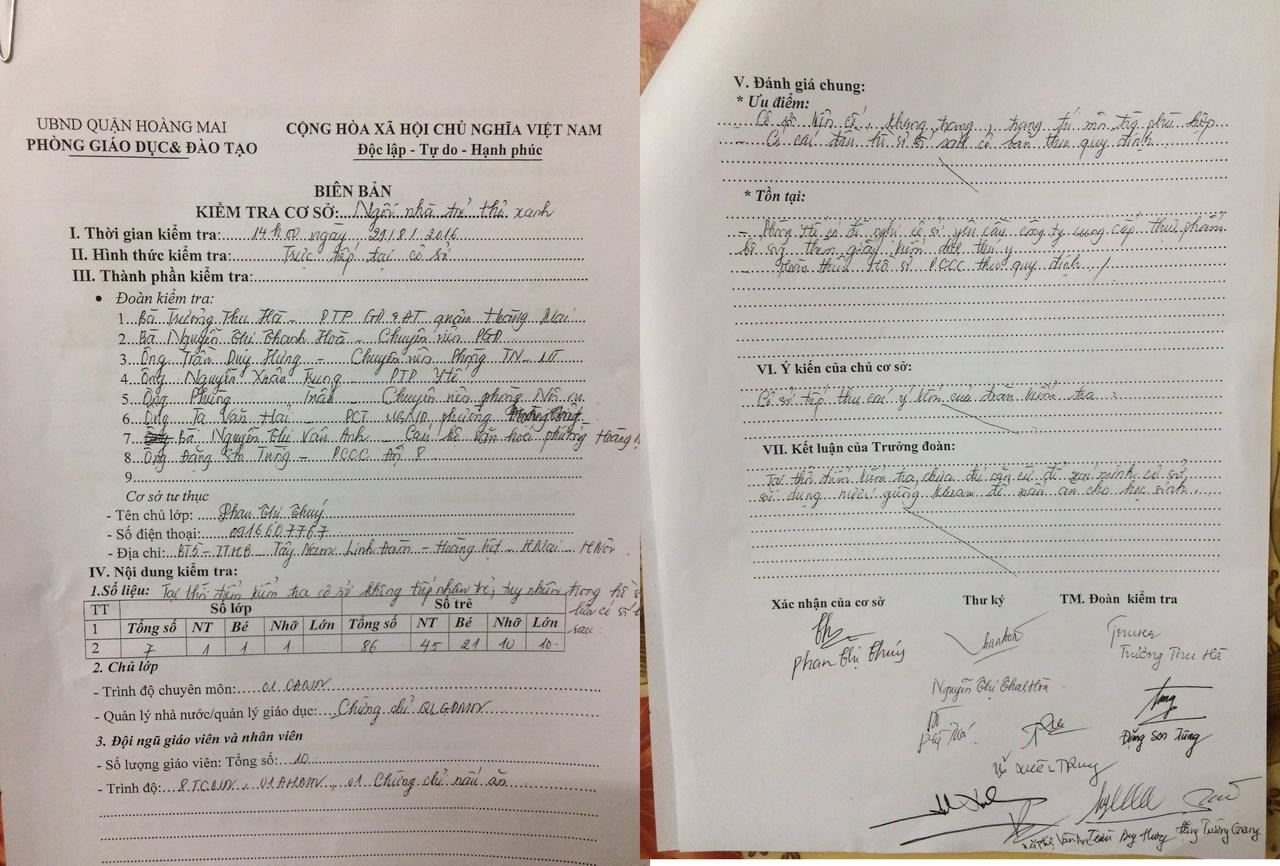 UBND QUẬN HOÀNG MAI
PHÒNG GIÁO DỤC& ĐÀO TẠO
CỘNG HÒA XÃ HỘI CHỦ NGHĨA VIỆT NAM
Độc lập - Tự do - Hạnh phúc
BIÊN BẢN
KIỂM TRA CƠ SỞ: Ngôi nhà trẻ thơ xanh
I. Thời gian kiểm tra: 14h00 ngày 29/8/2016
II. Hình thức kiểm tra: Trực tiếp tại cơ sở
III. Thành phần kiểm tra:
• Đoàn kiểm tra:
1. Bà Trương Thu Hà - PTP GD&ĐT quận Hoàng Mai
2. Bà Nguyễn Thị Thanh Hoà - Chuyên viên PGD
3. Ông Trần Duy Hưng - Chuyên viên Phòng TN-MT
4. Ông Nguyễn Xuân Trung - PTP Y tế
5. Ông Phùng - Chuyên viên phòng Nội vụ
6. Ông Tạ Văn Hai - PCT UBND phường
7. Bà Nguyễn Thị Vân Anh - Cán bộ văn hoá phường Hoàng
8. Ông Đặng Sơn Tùng - PCCC Số 8
9.
Cơ sở tư thục
- Tên chủ lớp: Phan Thị Thuý
- Số điện thoại: 0916607767
- Địa chỉ: BT5- - Tây Nam Linh Đàm - Hoàng Liệt - HMai - HNội
IV. Nội dung kiểm tra:
1.Số liệu: Tại thời điểm kiểm tra cơ sở không tiếp nhận trẻ, tuy nhiên trong hồ s
sau:
TT Số lớp Số trẻ
1 Tổng số NT Bé Nhỡ Lớn Tổng số NT Bé Nhỡ Lớn
2 7 1 1 1 86 45 21 10 10
2. Chủ lớp
- Trình độ chuyên môn: 01 CĐMN
- Quản lý nhà nước/quản lý giáo dục: Chứng chỉ QLGDMN
3. Đội ngũ giáo viên và nhân viên
- Số lượng giáo viên: Tổng số: 10
- Trình độ: 8 TCMN, 01 ĐHMN, 01 Chứng chỉ nấu ăn
V. Đánh giá chung:
* Ưu điểm:
- Cơ sở kiên cố, khang trang, trang trí môi trường phù hợp
- Có cơ bản theo quy định.
* Tồn tại:
- Phòng Y tế có đề nghị cơ sở yêu cầu công ty cung cấp thực phẩm
bổ sung thêm giấy kiểm dịch thú y
- Hoàn thiện Hồ sơ PCCC theo quy định
VI. Ý kiến của chủ cơ sở:
Cơ sở tiếp thu các ý kiến của đoàn kiểm tra
VII. Kết luận của Trưởng đoàn:
Tại thời điểm kiểm tra, chưa đủ căn cứ để xác minh cơ sở
sử dụng nước giếng khoan để nấu ăn cho học sinh.
Xác nhận của cơ sở Thư ký TM. Đoàn kiểm tra
Phan Thị Thuý
Trương Thu Hà
Đặng Sơn Tùng
Trần Duy Hưng